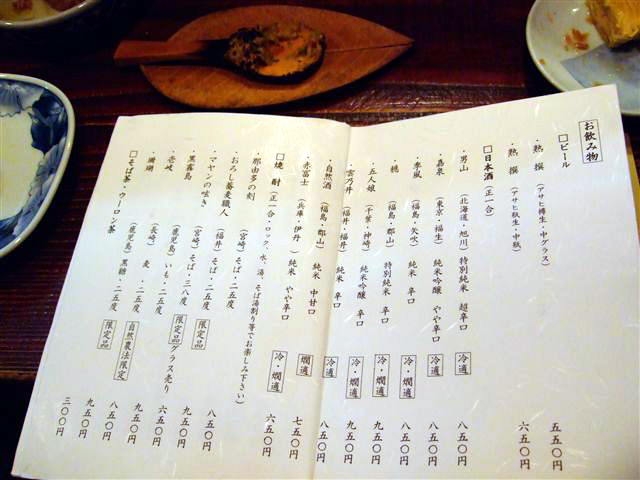 お飲み物
□ビール
・熟撰 (アサヒ樽生・中グラス) 五五〇円
・熟撰 (アサヒ瓶生・中瓶) 六五〇円
□日本酒 (正一合)
・男山 (北海道・旭川) 特別純米 超辛口 冷適 八五〇円
・嘉泉 (東京・福生) 純米吟醸 やや辛口 冷適 八五〇円
・季風 (福島・矢吹) 純米 辛口 冷・燗適 八五〇円
・穏 (福島・郡山) 特別純米 冷・燗適 九五〇円
・五人娘 (千葉・神崎) 純米吟醸 辛口 冷・燗適 九五〇円
・雲乃井 (福井・福井) 純米 辛口 冷適 八五〇円
・自然酒 (福島・郡山) 純米 中甘口 燗適 七五〇円
・赤富士 (兵庫・伊丹) 純米 やや辛口 冷・燗適 六五〇円
□焼酎 (正一合・ロック、水、湯、そば湯割り等でお楽しみ下さい)
・那由多の刻 (宮崎) そば・二五度 八五〇円
・おろし蕎麦職人 (福井) そば・二五度 限定品 九五〇円
・マヤンの呟き (宮崎) そば・三八度 限定品 グラス売り 六五〇円
・黒霧島 (鹿児島) いも・二五度 九五〇円
・壱岐 (長崎) 麦・二五度 自然農法限定 八五〇円
・珊瑚 (鹿児島) 黒糖・二五度 限定品 九五〇円
□そば茶・ウーロン茶 三〇〇円